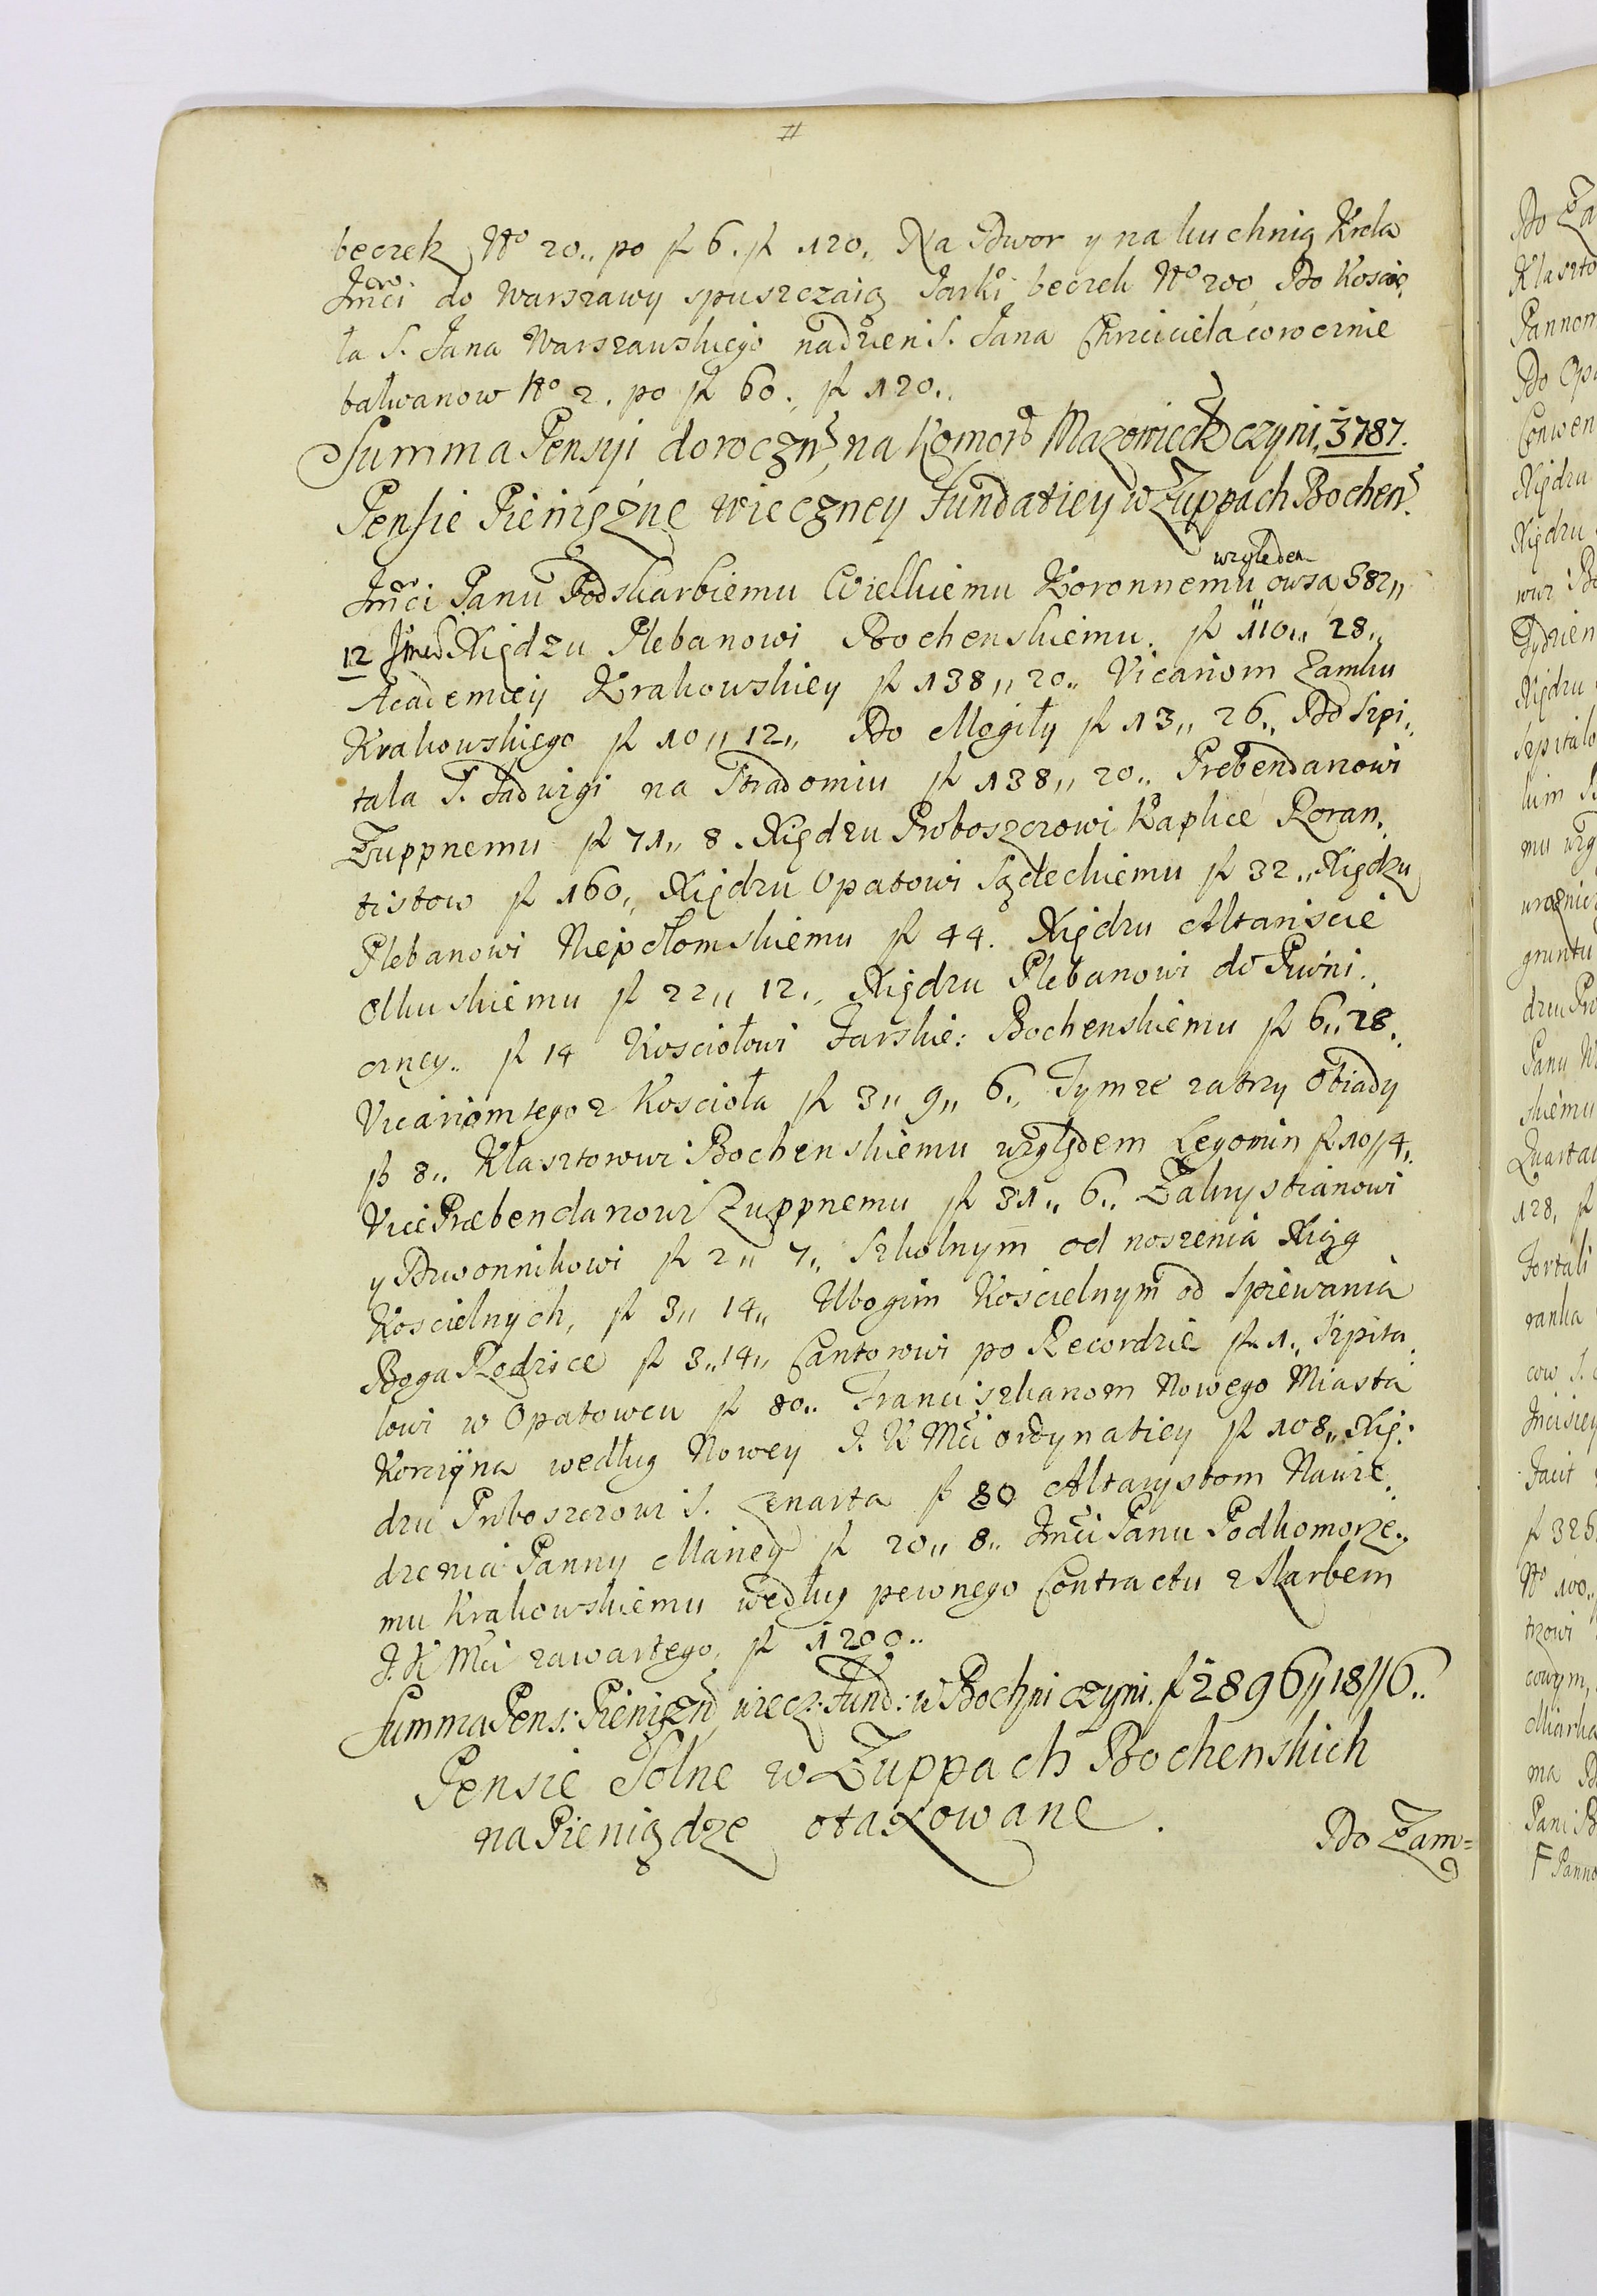 beczek No 20,, po f 6. f 120,, Na Dwor y na kuchnią Krola
Jmci do Warszawy spuszczaią Parki beczek No 200, Do Koscio,
ła S. Jana Warszawskiego na dzien S. Jana Chrzciciela corocznie
bałwanow No 2. po f 60., f 120.,
Summa Pensyi doroczn na Komorᵉ Mazowieck czyni. 3787.
Pensie Pieniężne wieczney Fundatiey w Zuppach Bochen:
względem
Jmci Panu Podskarbiemu Wielkiemu Koronnemu owsa 582,,
12 Jmci Xiędzu Plebanowi Bochenskiemu. f 110,, 28,,
Academiey Krakowskiey f 138,, 20,, Vicariom Zamku
Krakowskiego f 10,, 12,, Do Mogiły f 13,, 26,, Do Szpi,,
tala S. Jadwigi na Stradomiu f 138,, 20,, Prebendanowi
Zuppnemu f 71,, 8. Xiędzu Proboszczowi Kaplice Roran,
tistow f 160,, Xiędzu Opatowi Sądeckiemu f 32,, Xiędzu
Plebanowi Niepołomskiemu f 44. Xiędzu Altariscie
Olkuskiemu f 22,, 12,, Xiędzu Plebanowi do Piwni,
czney,, f 14 Kosciołowi Farskie: Bochenskiemu f 6,, 28,
Vicariom tegoz Koscioła f 3,, 9,, 6,, Tymze za trzy Obiady
f 8,, Klasztorowi Bochenskiemu względem Legomin f 10,, 4,
Vice Præbendanowi Zuppnemu f 31,, 6,, Zakrystianowi
y Dzwonnikowi f 2,, 7,, Szkolnym od noszenia Xiąg
Koscielnych, f 3,, 14,, Ubogim Koscielnym od spiewania
Boga Rodzice f 3,, 14,, Cantorowi po Recordzie f 1,, Szpita,
lowi w Opatowcu f 80,, Franciszkanom Nowego Miasta
Korczyna według Nowey J. K Mci ordynatiey f 108,, Xię:
dzu Proboszczowi S. Lenarta f 80 Altarystom Nawie,
dzenia Panny Mariey f 20,, 8,, Jmci Panu Podkomorze,,
mu Krakowskiemu według pewnego Contractu z Skarbem
J. K Mci zawartego, f 1200,,
Summa Pens: Pieniężn wiecz: Fund: w Bochni czyni. f 2896,, 18,, 6,,
Pensie Solne w Zuppach Bochenskich
na Pieniądze otaxowane.
Do Zam=